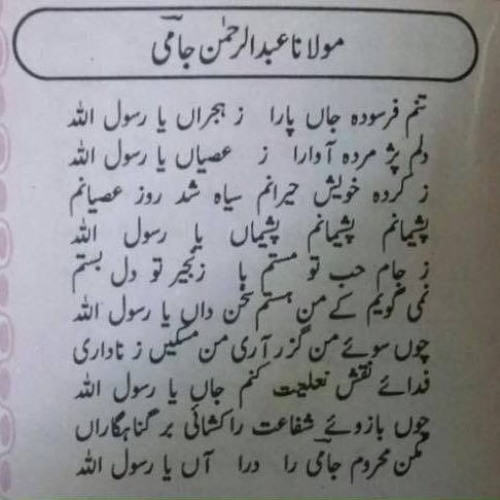 مولانا عبدالرحمٰن جامیؒ
تنم فرسودہ جاں پارا ز ہجراں یا رسول اللہ
دلم پژ مردہ آوارا ز عصیاں یا رسول اللہ
ز کردہ خویش حیرانم سیاہ شد روز عصیانم
پشیمانم پشیمانم پشیماں یا رسول اللہ
ز جام حب تو مستم با زنجیر تو دل بستم
نمی گویم کے من ہستم سخن داں یا رسول اللہ
چوں سوئے من گزر آری من مسکیں ز ناداری
فدائے نقش نعلیت کنم جاں یا رسول اللہ
چوں بازوئے شفاعت را کشائی بر گناہگاراں
مکن محروم جامیؒ را درا آں یا رسول اللہ